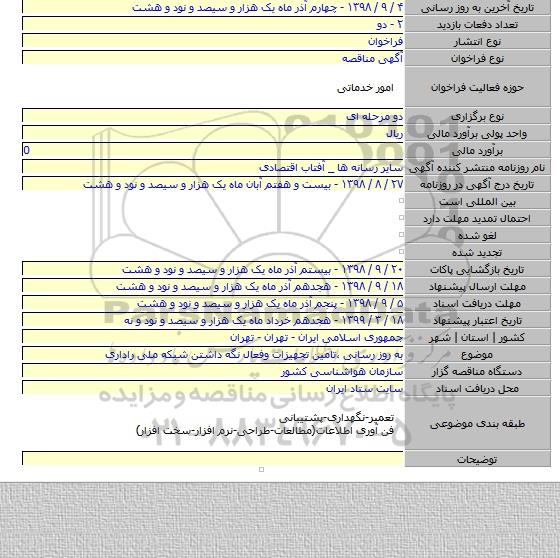 تاریخ آخرین به روز رسانی ۴ / ۹ / ۱۳۹۸ - چهارم آذر ماه یک هزار و سیصد و نود و هشت
تعداد دفعات بازدید ۲ - دو
نوع انتشار فراخوان
نوع فراخوان آگهی مناقصه
حوزه فعالیت فراخوان امور خدماتی
نوع برگزاری دو مرحله ای
واحد پولی برآورد مالی ریال
برآورد مالی 0
نام روزنامه منتشر کننده آگهی سایر رسانه ها _ آفتاب اقتصادی
تاریخ درج آگهی در روزنامه ۲۷ / ۸ / ۱۳۹۸ - بیست و هفتم آبان ماه یک هزار و سیصد و نود و هشت
بین المللی است
احتمال تمدید مهلت دارد
لغو شده
تجدید شده
تاریخ بازگشایی پاکات ۲۰ / ۹ / ۱۳۹۸ - بیستم آذر ماه یک هزار و سیصد و نود و هشت
مهلت ارسال پیشنهاد ۱۸ / ۹ / ۱۳۹۸ - هجدهم آذر ماه یک هزار و سیصد و نود و هشت
مهلت دریافت اسناد ۵ / ۹ / ۱۳۹۸ - پنجم آذر ماه یک هزار و سیصد و نود و هشت
تاریخ اعتبار پیشنهاد ۱۸ / ۳ / ۱۳۹۹ - هجدهم خرداد ماه یک هزار و سیصد و نود و نه
کشور | استان | شهر جمهوری اسلامی ایران - تهران - تهران
موضوع به روز رسانی ،تامین تجهیزات وفعال نگه داشتن شبکه ملی راداری
دستگاه مناقصه گزار سازمان هواشناسی کشور
محل دریافت اسناد سایت ستاد ایران
طبقه بندی موضوعی تعمیر-نگهداری-پشتیبانی
فن آوری اطلاعات(مطالعات-طراحی-نرم افزار-سخت افزار)
توضیحات
ParsNamadData
پایگاه اطلاع رسانی مناقصه و مزایده
۰۲۱-۸۸۳۴۹۶۷۰-۵